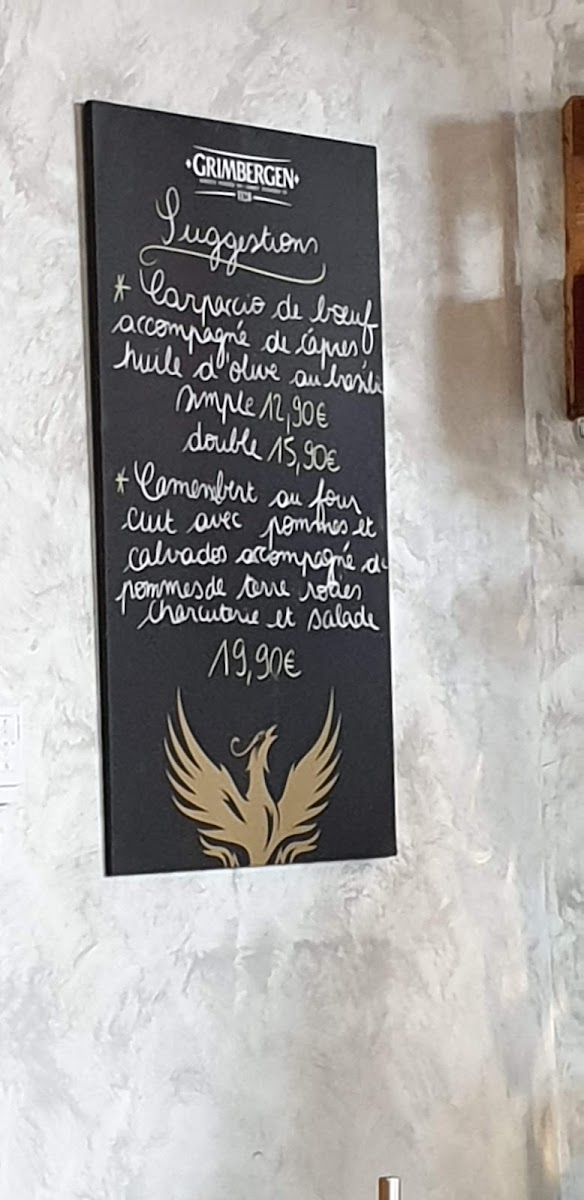 GRIMBERGEN
Suggestions
* Carpaccio de bœuf
accompagné de câpres
huile d'olive au basilic
simple 12,90€
double 15,90€
* Camembert au four
cuit avec pommes et
calvados accompagné de
pommes de terre roties
charcuterie et salade
19,90€